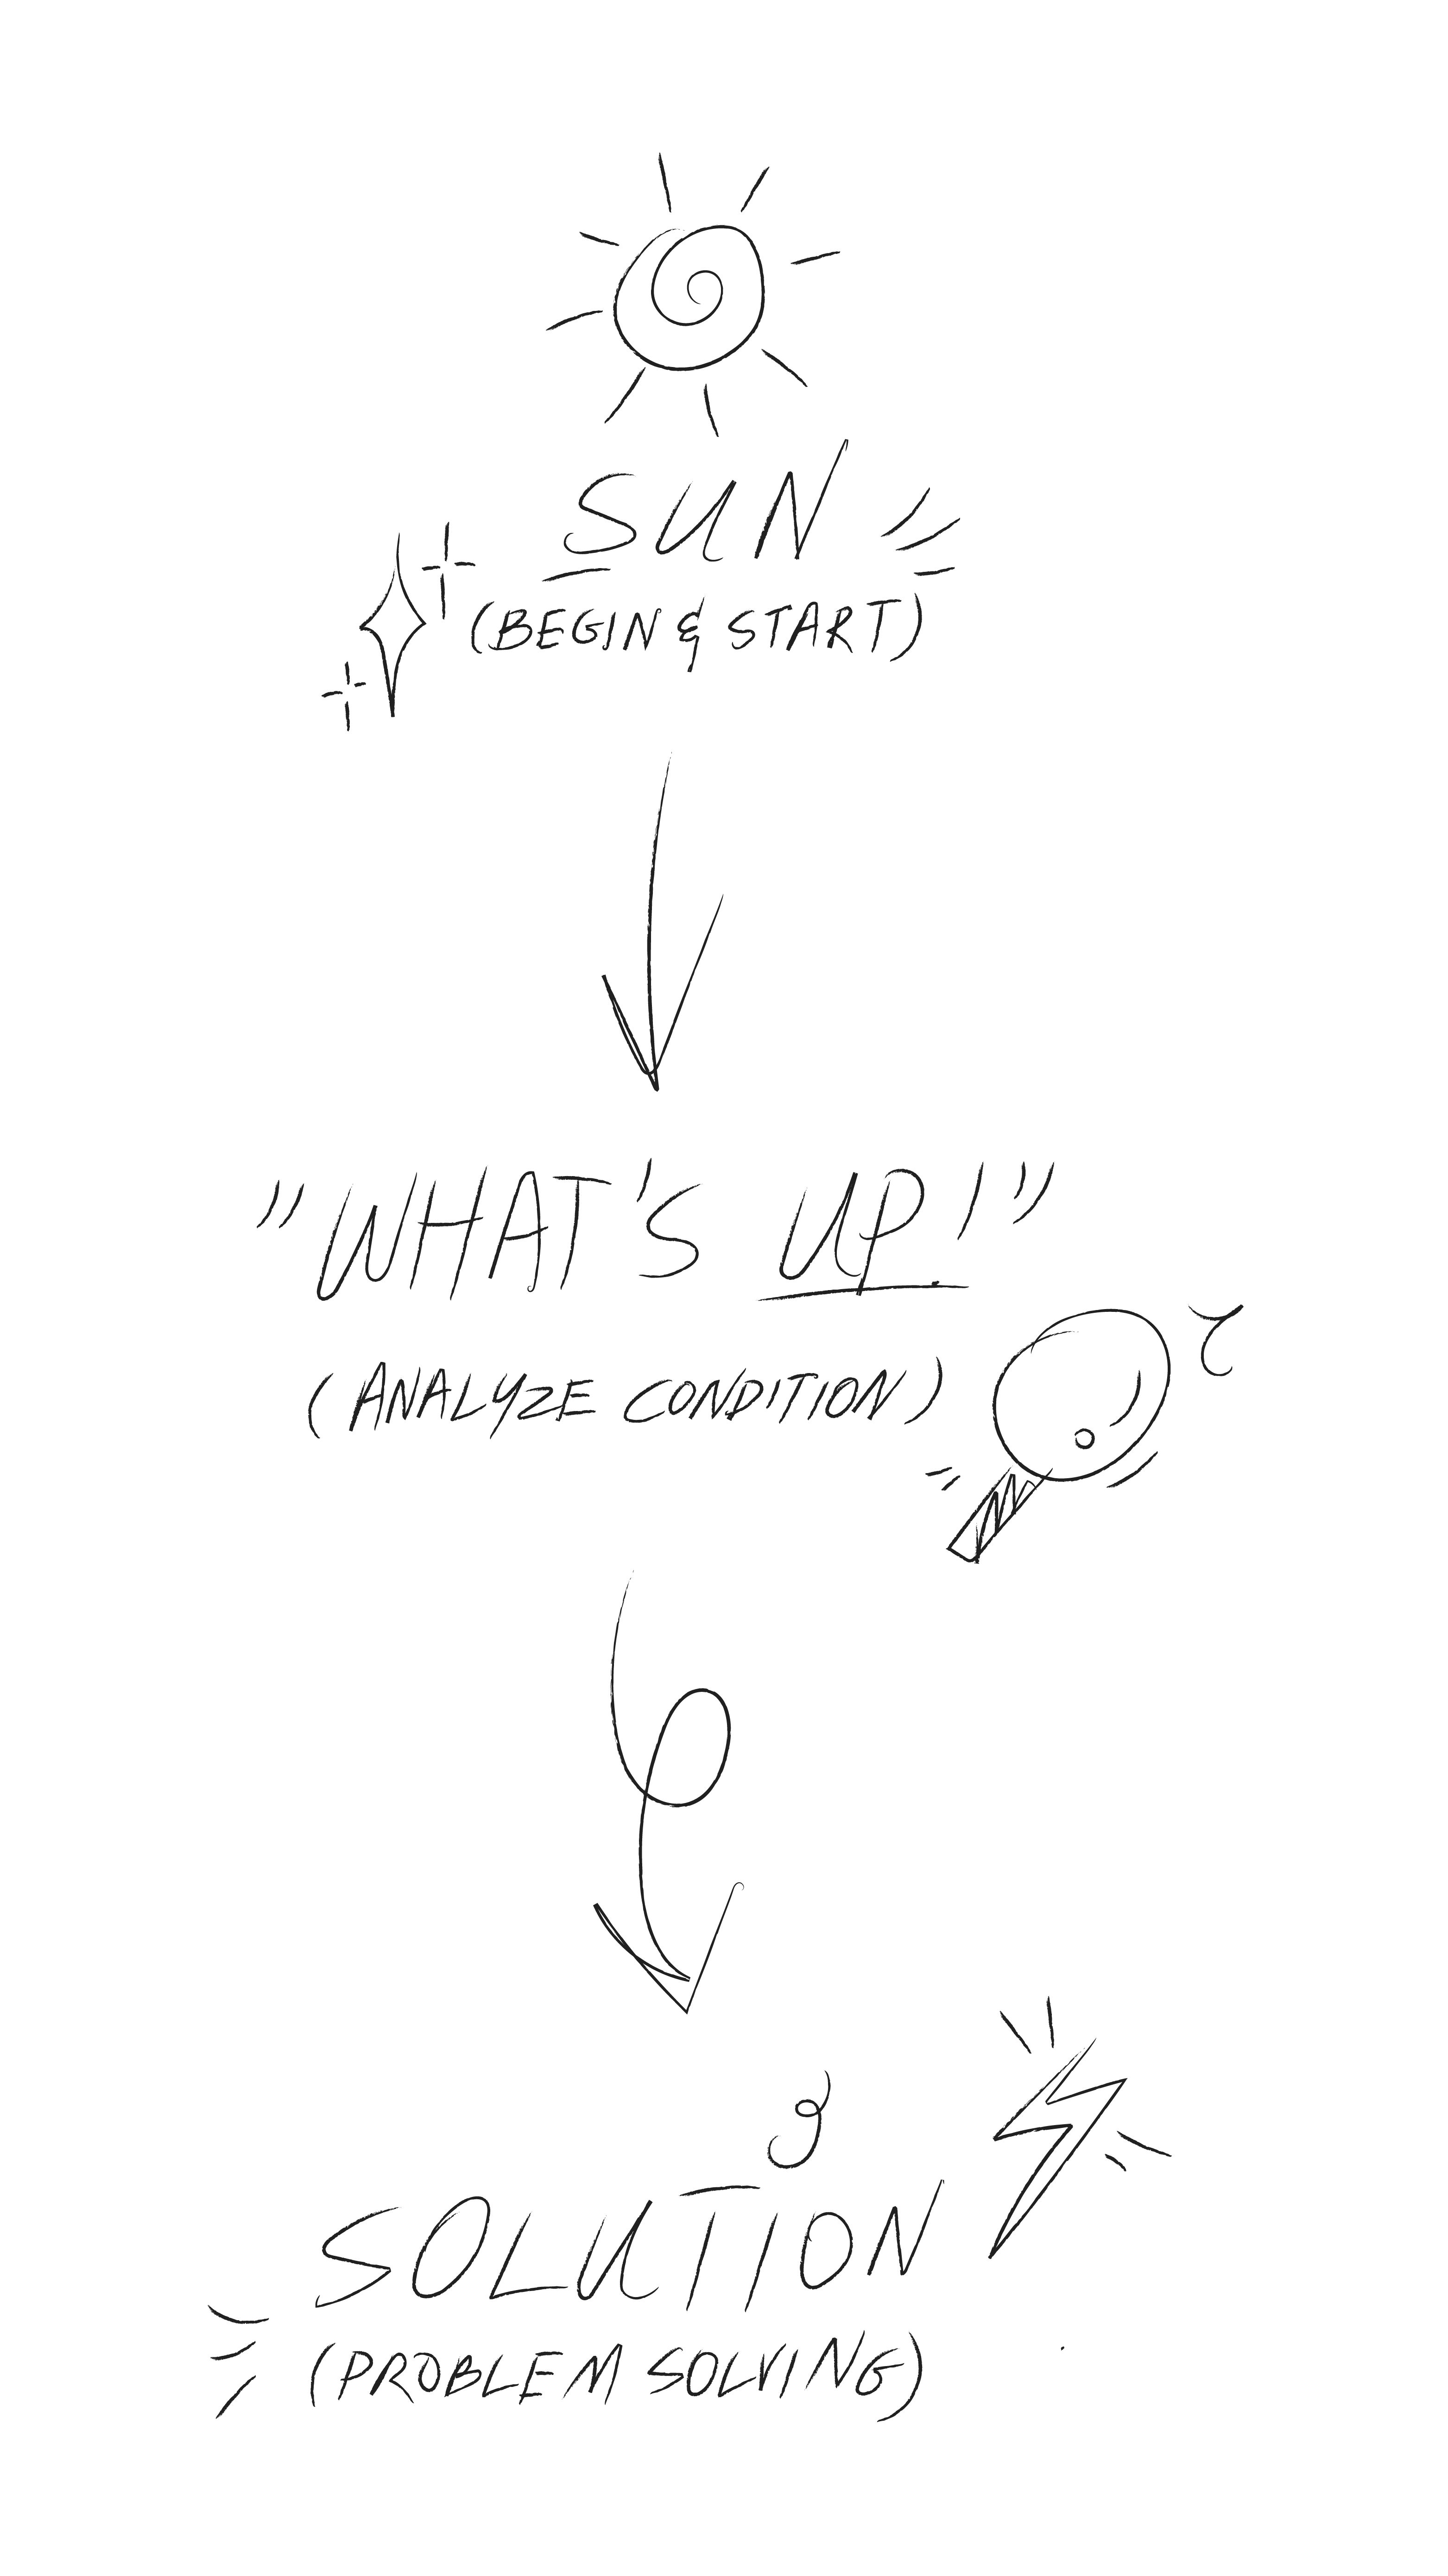 SUN
(BEGIN & START)
"WHAT'S UP!"
(ANALYZE CONDITION)
SOLUTION
(PROBLEM SOLVING)